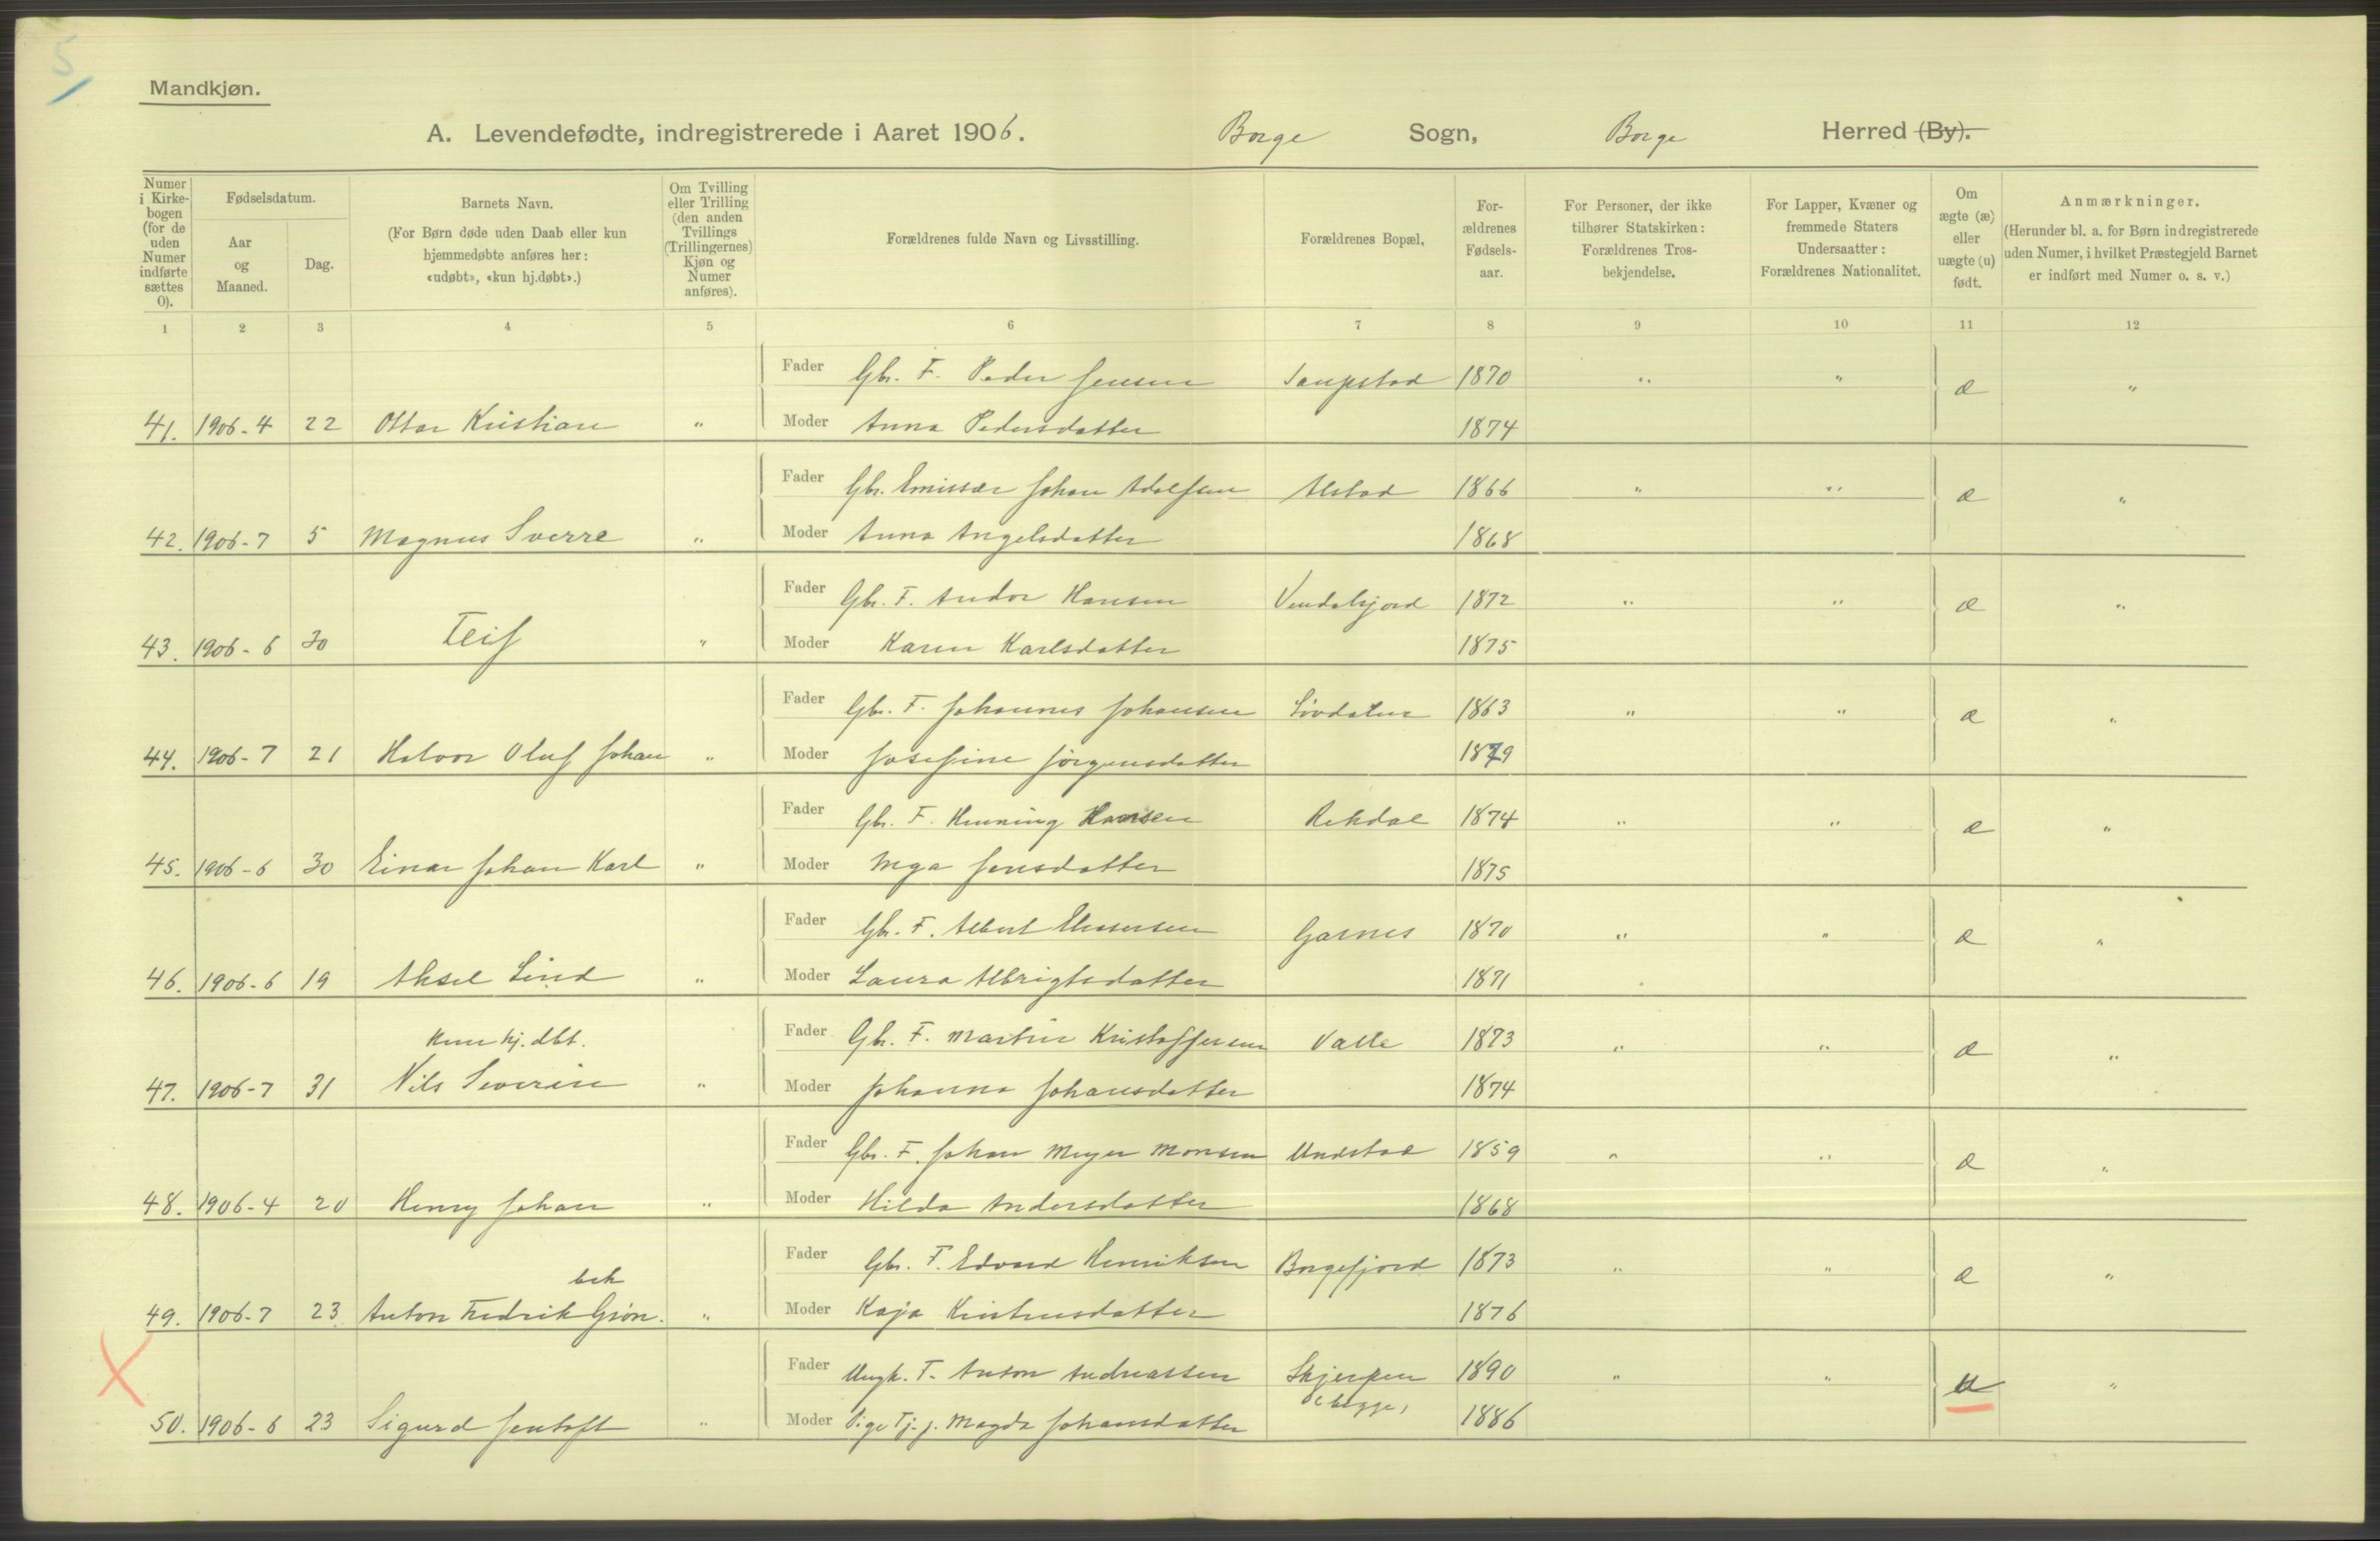 5
Mandkjøn.
A. Levendefødte, indregistrerede i Aaret 1906. Borge Sogn, Borge Herred (By).
Numer i Kirke-bogen (for de uden Numer indførte sættes 0).
Fødselsdatum.
Aar og Maaned.
Dag.
Barnets Navn.
(For Børn døde uden Daab eller kun hjemmedøbte anføres her: «udøbt», «kun hj.døbt».)
Om Tvilling eller Trilling (den anden Tvillings (Trillingernes) Kjøn og Numer anføres).
Forældrenes fulde Navn og Livsstilling.
Forældrenes Bopæl,
For-ældrenes Fødsels-aar.
For Personer, der ikke tilhører Statskirken: Forældrenes Tros-bekjendelse.
For Lapper, Kvæner og fremmede Staters Undersaatter: Forældrenes Nationalitet.
Om ægte (æ) eller uægte (u) født.
Anmærkninger.
(Herunder bl. a. for Børn indregistrerede uden Numer, i hvilket Præstegjeld Barnet er indført med Numer o. s. v.)
1 2 3 4 5 6 7 8 9 10 11 12
Fader Gbr. F. Peder Jensen Saupstad 1870 " " æ "
41. 1906-4 22 Ottar Kristian " Moder Anna Pedersdatter 1874
Fader Gbr. Emissær Johan Adolfsen Alstad 1866 " " æ "
42. 1906-7 5 Magnus Sverre " Moder Anna Angelsdatter 1868
Fader Gbr. F. Andor Hansen Vendalsjord 1872 " " æ "
43. 1906-6 30 Leif " Moder Karen Karlsdatter 1875
Fader Gbr. F. Johannes Johansen 1863 " " æ "
44. 1906-7 21 Halvor Oluf Johan " Moder Josefine Jørgensdatter 1879
Fader Gbr. F. Henning Hansen Rekdal 1874 " " æ "
45. 1906-6 30 Einar Johan Karl " Moder Inga Jensdatter 1875
Fader Gbr. F. Albert Garnes 1870 " " æ "
46. 1906-6 19 Aksel Lind " Moder Laura Albrigtsdatter 1871
kun hj. dbt.
Fader Gbr. F. Martin Kristoffersen Valle 1873 " " æ "
47. 1906-7 31 Nils Severin " Moder Johanna Johansdatter 1874
Fader Gbr. F. Johan Meyer Monsen Undstad 1859 " " æ "
48. 1906-4 20 Henry Johan " Moder Hilda Andersdatter 1868
Fader Gbr. F. Edvard Henriksen Borgefjord 1873 " " æ "
bek
49. 1906-7 23 Anton Fredrik Grøn. " Moder Kaja Kristensdatter 1876
Fader Ungk. F. Anton Andreassen Skjerpen 1890 " " u "
(begge)
50. 1906-6 23 Sigurd Jentoft " Moder Pige Tj. j. Magda Johansdatter 1886